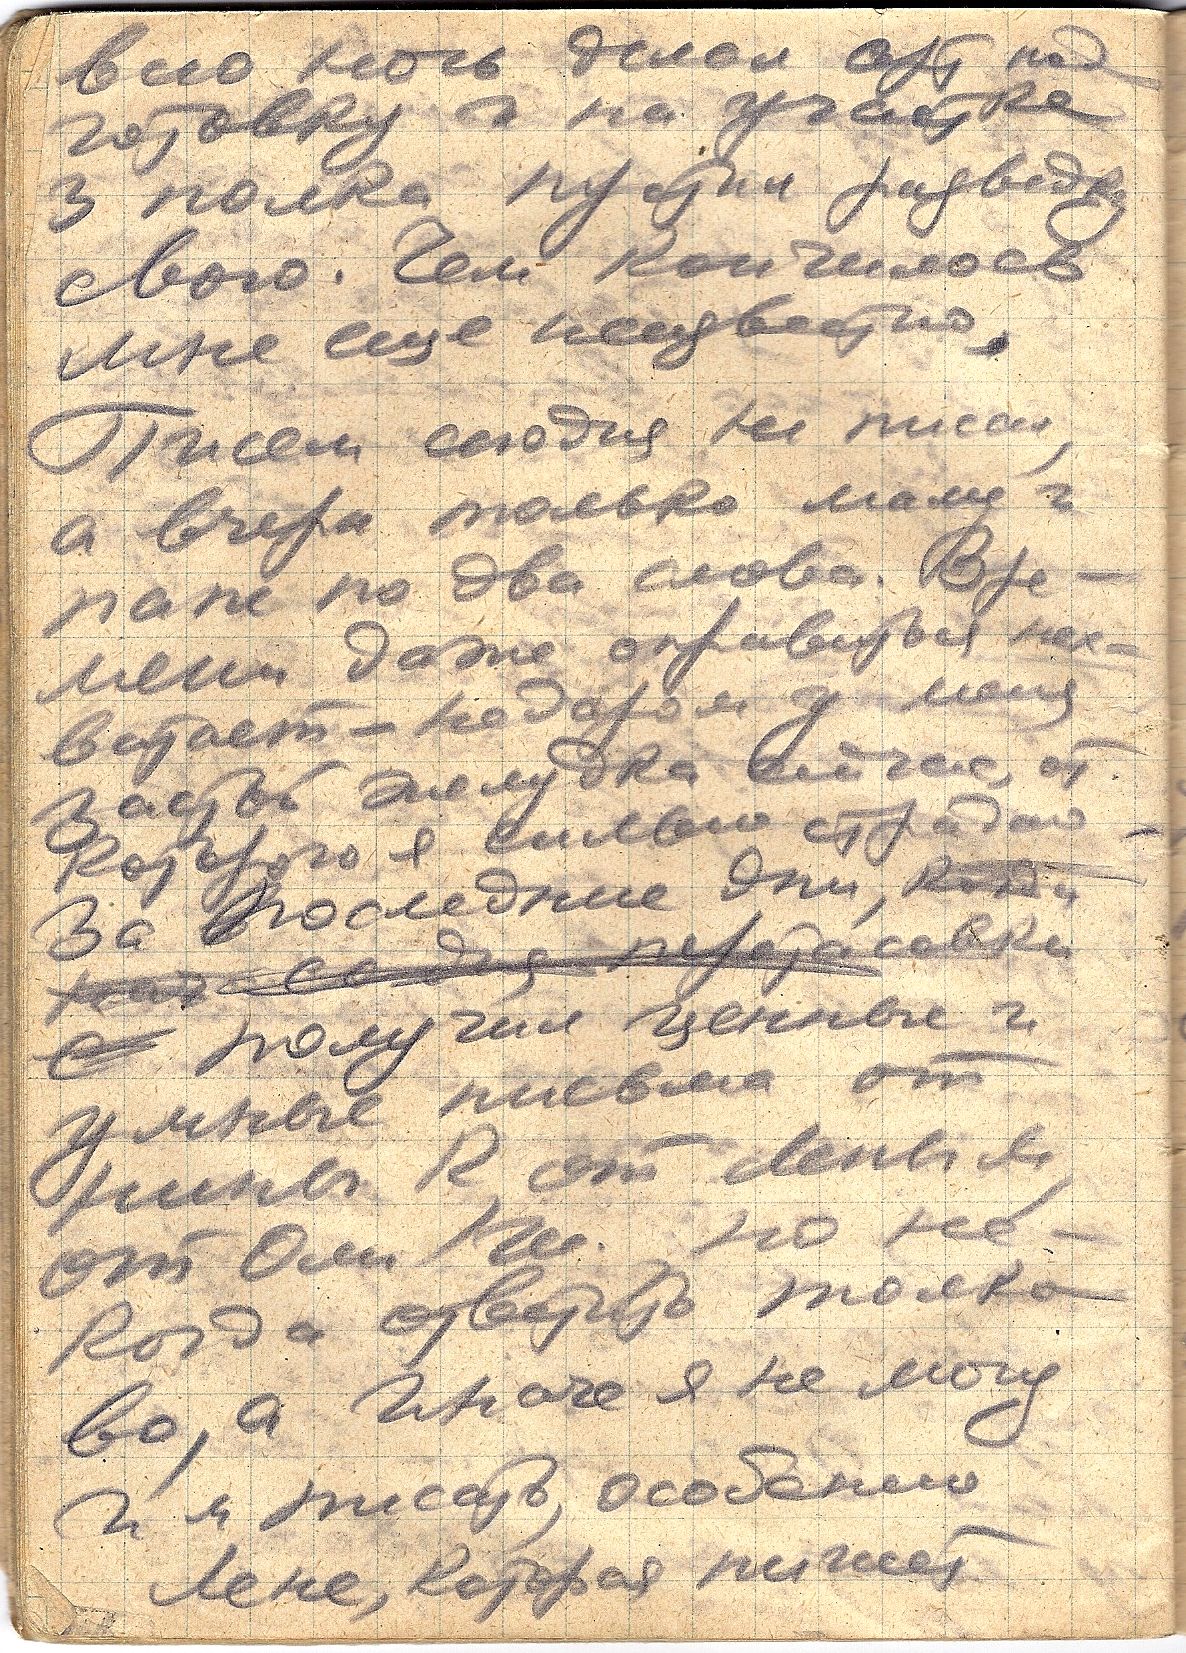 всю ночь делал арт под
готовку и на участке
3 полка пустил разведку
свою. Чем кончилось
мне еще неизвестно.
Писем сегодня не писал,
а вчера только маме и
папе по два слова. Вре-
мени даже оправиться нех-
ватает – недаром у меня
желудка сейчас, от
которого я сильно страдаю
За последние дни,
перетасовки
получил ценные и
умные письма от
Нины К, от Лены Л,
от Оли но не-
когда ответить толко-
во, а иначе я не могу
им писать, особенно
Лене, которая пишет